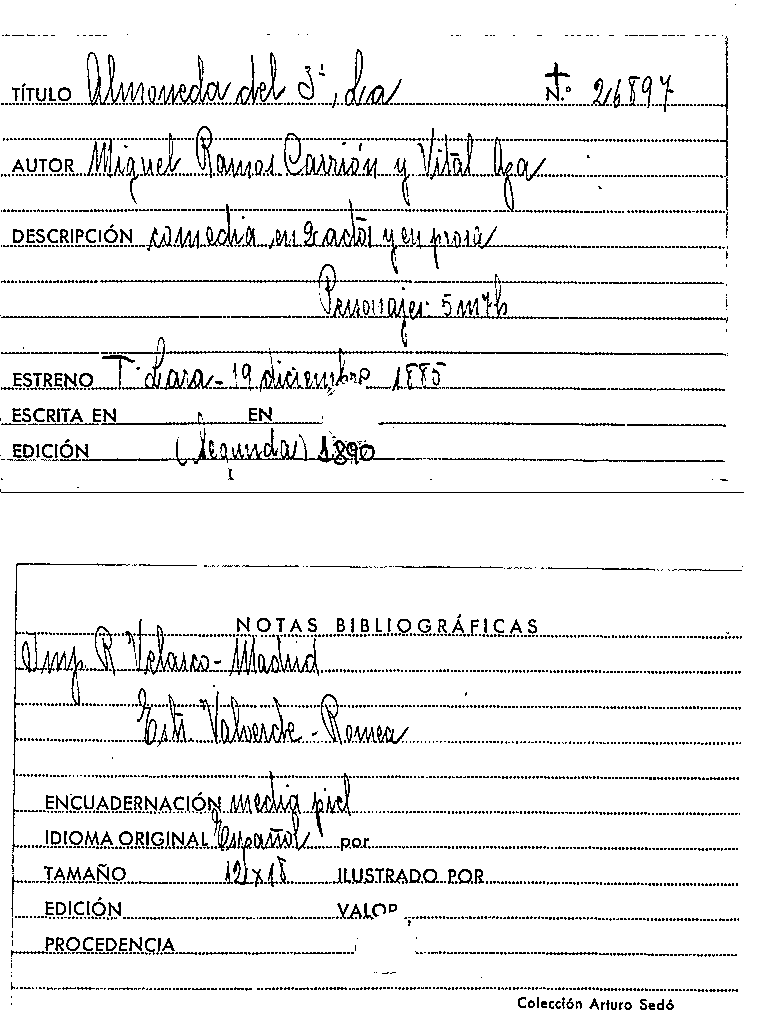 TÍTULO Almoneda del 3º, La N.º 26897
AUTOR Miguel Ramos Carrión y Vital Aza
DESCRIPCIÓN comedia en 2 actos y en prosa
Personajes 5m7h
ESTRENO Tº Lara - 19 diciembre 1885
ESCRITA EN EN
EDICIÓN (Segunda) 1890
NOTAS BIBLIOGRÁFICAS
Imp. R Velasco - Madrid
Estr. Valverde - Romea
ENCUADERNACIÓN media piel
IDIOMA ORIGINAL Español por
TAMAÑO 12x18 ILUSTRADO POR
EDICIÓN VALOR
PROCEDENCIA
Colección Arturo Sedó